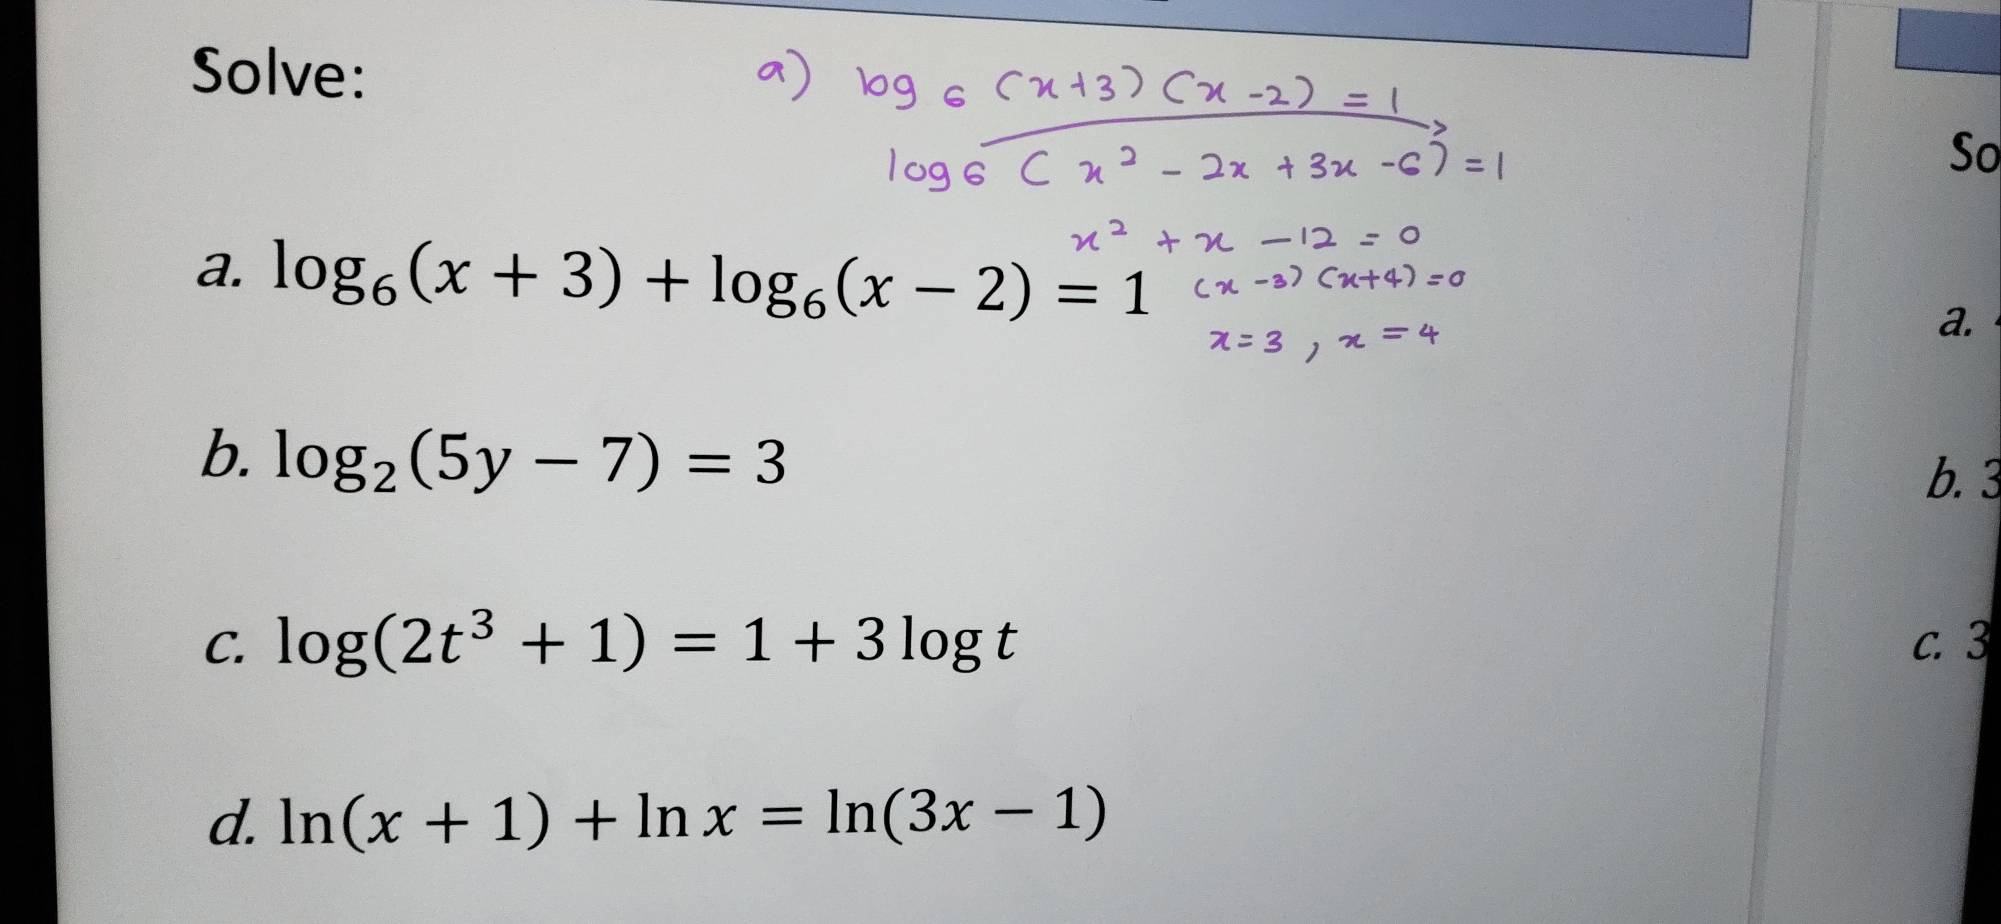 Solve:
a) log₆ (x+3) (x-2) = 1
log₆ (x² - 2x + 3x -6) = 1
x² + x - 12 = 0
a. log₆(x + 3) + log₆(x − 2) = 1
(x -3) (x+4) = 0
x = 3 , x = 4
b. log₂(5y − 7) = 3
c. log(2t³ + 1) = 1 + 3 log t
d. ln(x + 1) + ln x = ln(3x − 1)
So
a.
b. 3
c. 3